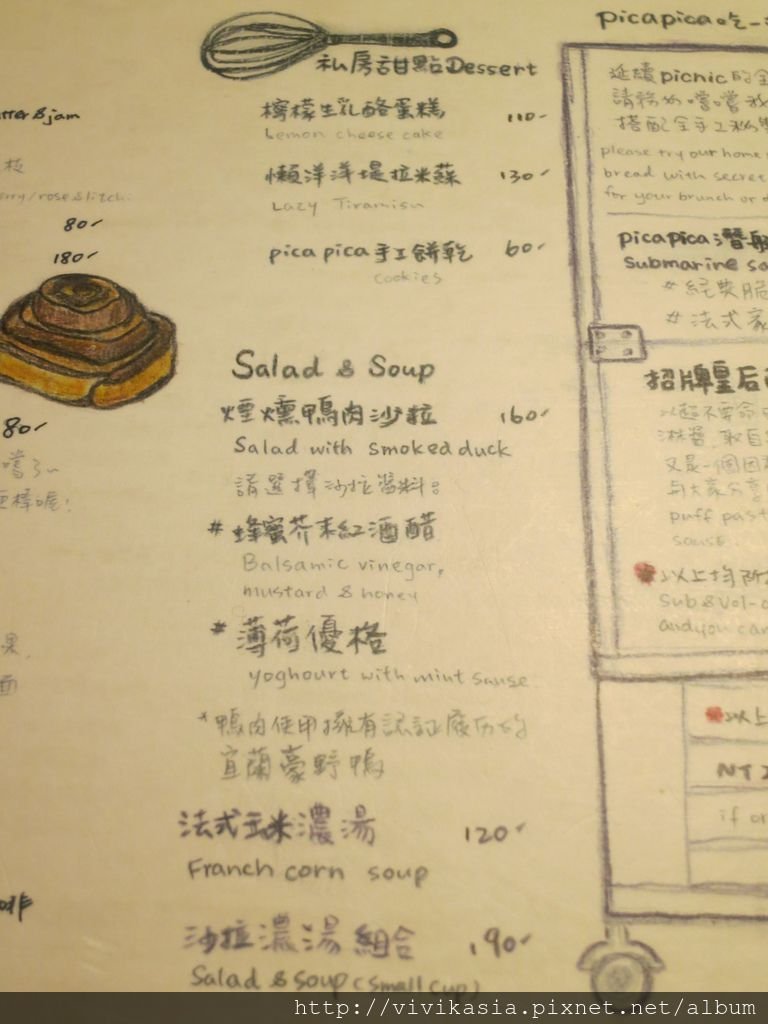 私房甜點Dessert
檸檬生乳酪蛋糕 110
Lemon cheese cake
懶洋洋堤拉米蘇 130
Lazy Tiramisu
pica pica手工餅乾 60
cookies
Salad & Soup
煙燻鴨肉沙拉 160
Salad with smoked duck
請選擇沙拉醬料:
# 蜂蜜芥末紅酒醋
Balsamic vinegar,
mustard & honey
* 薄荷優格
yoghourt with mint sause
*鴨肉使用擁有認証履历的
宜蘭豪野鴨
法式玉米濃湯 120
Franch corn soup
沙拉濃湯組合 190
Salad & soup (small cup)
& jam
枝
rry/rose & litch.
80
180
80
嚐了~
果,
面
啡
picapica吃一
延續picnic的
請務必嚐嚐我
搭配全手工
please try out home
bread with secret
for your brunch or d
picapica潛艇
Submarine sa
# 經典脆
# 法式
招牌皇后
以超不要命
淋醬,取自
又是一個因
與大家分享
puff past
sause..
以上均附
Sub & Vol-
and you can
以上
NT
if or
http://vivikasia.pixnet.net/album